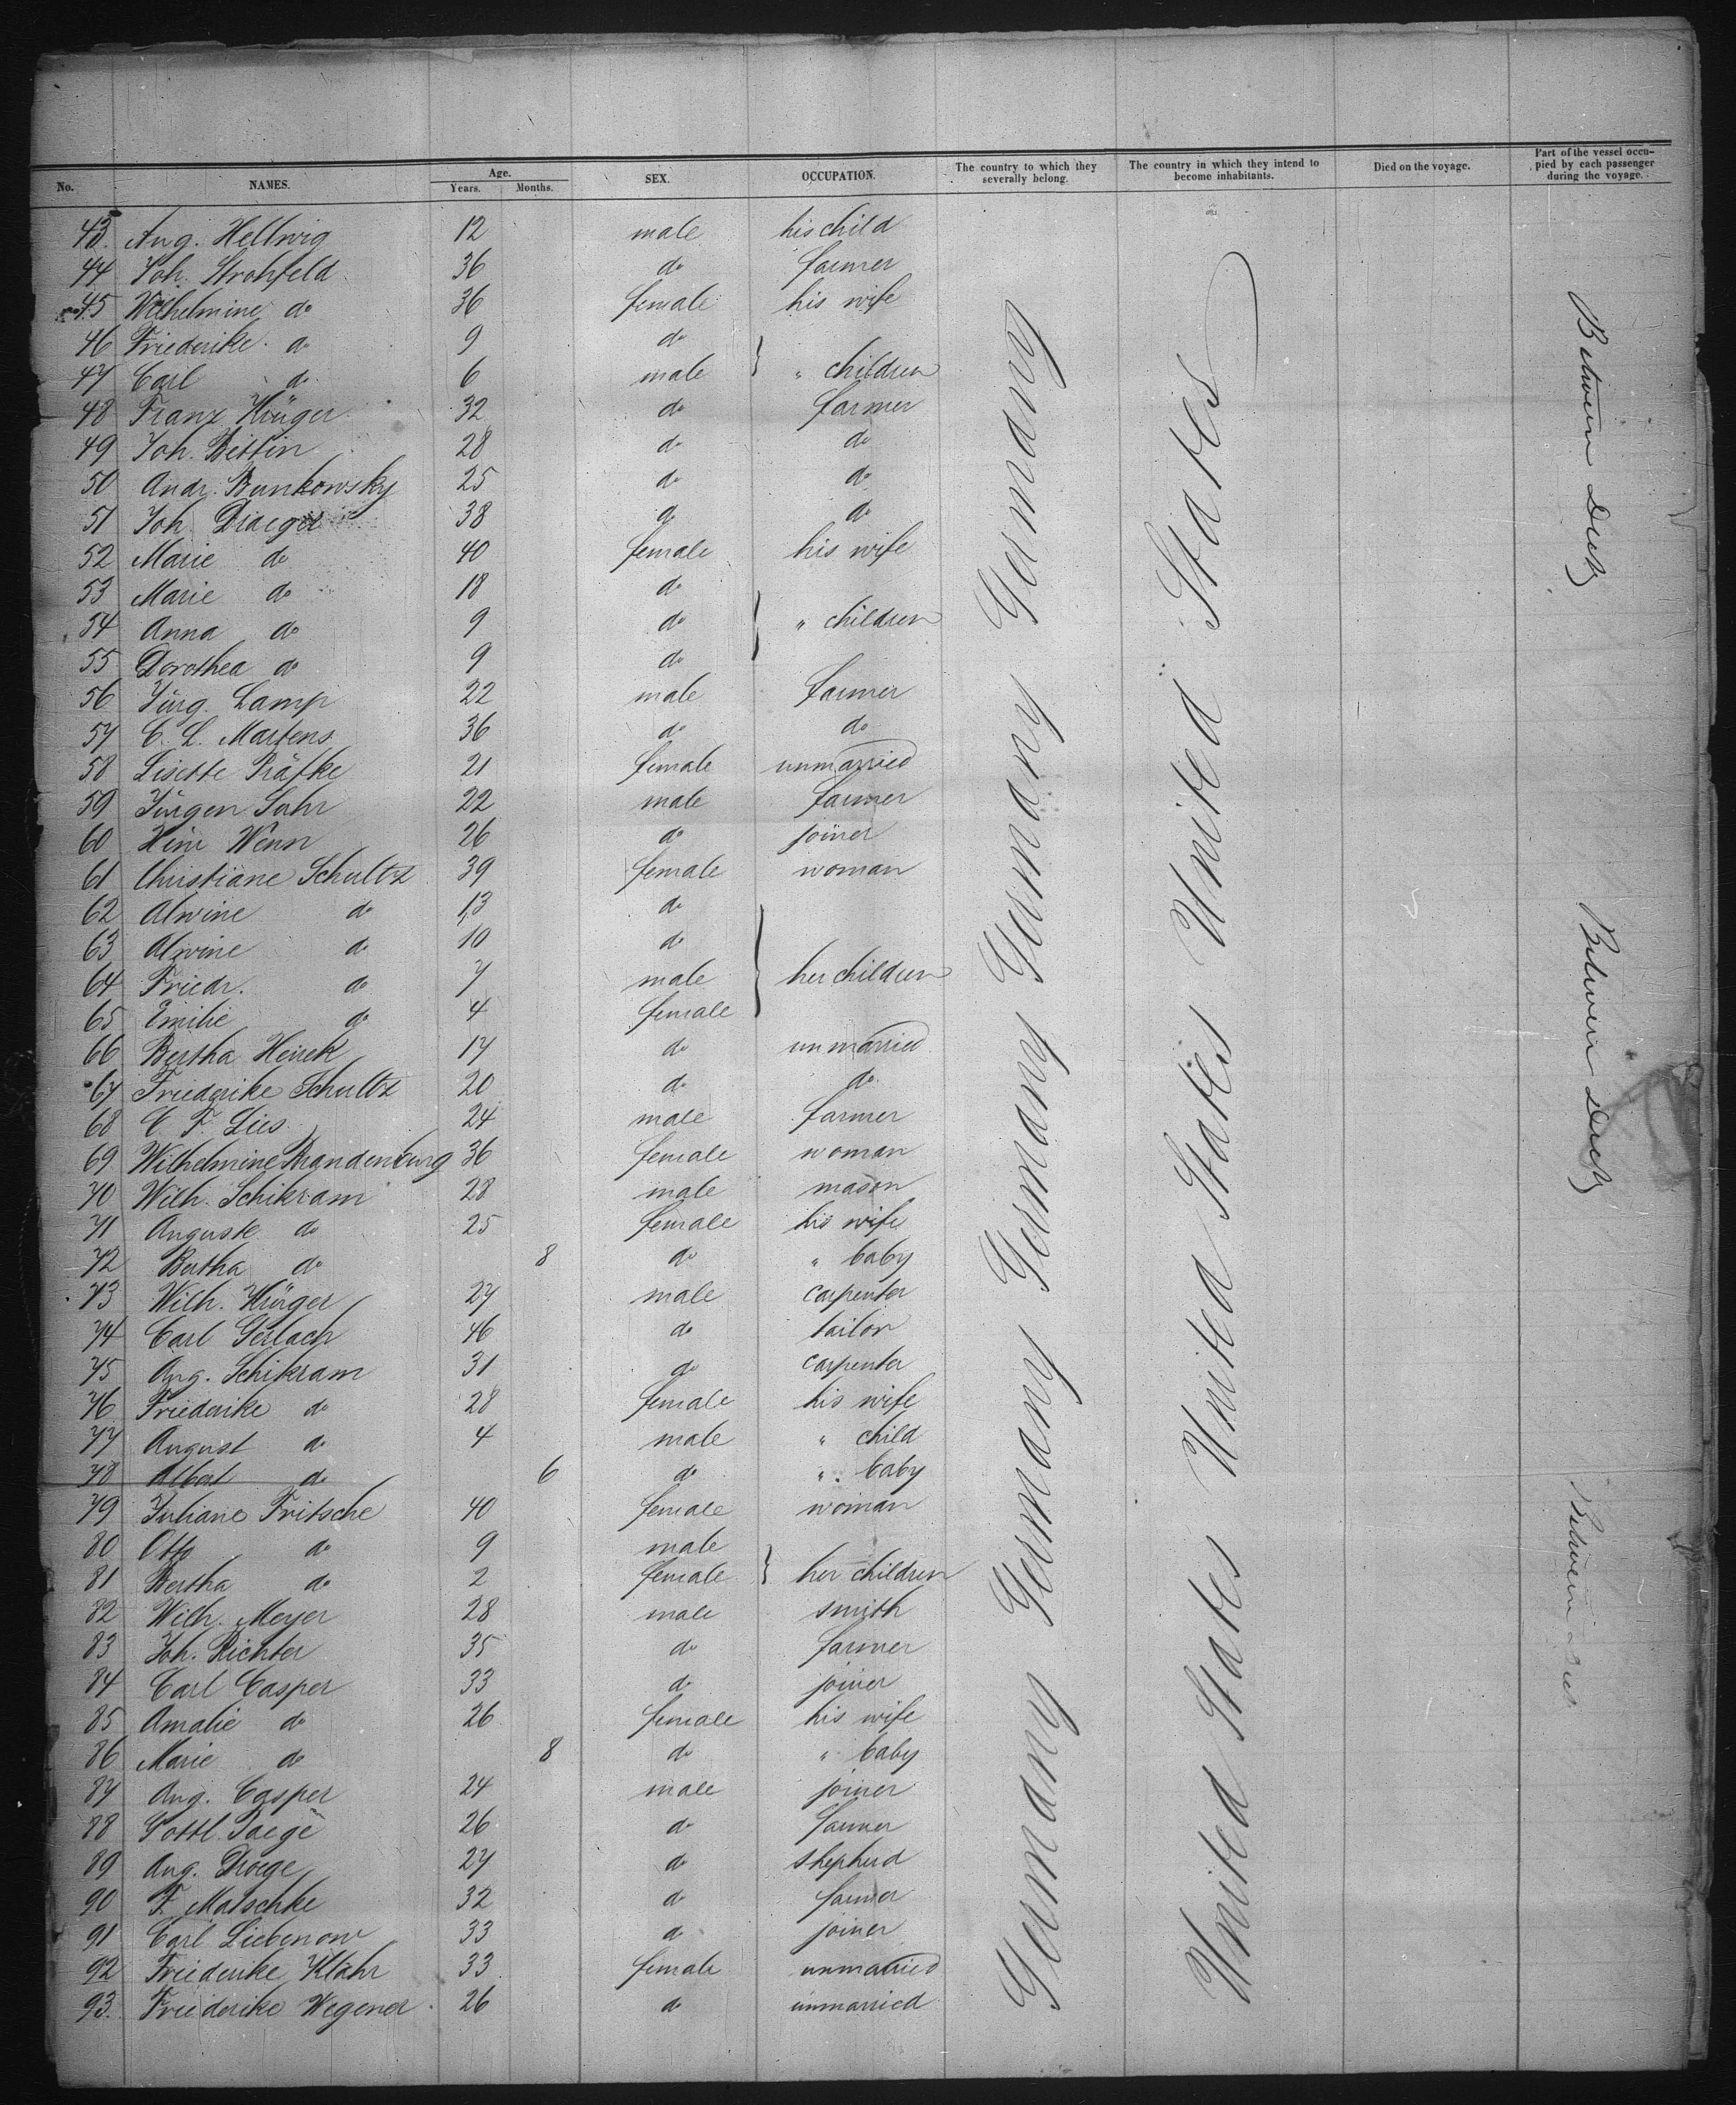 No. NAMES. Age. Years. Months. SEX. OCCUPATION. The country to which they severally belong. The country in which they intend to become inhabitants. Died on the voyage. Part of the vessel occupied by each passenger during the voyage.
43. Aug. Hellwig 12 male his child
44 Joh. Strohfeld 36 do farmer
45 Wilhelmine do 36 female his wife
46 Friederike do 9 do
47 Carl do 6 male } " children
48 Franz Krüger 32 do farmer
49 Joh. Bettin 28 do do
50 Andr. Bunkowsky 25 do do
51 Joh. Draeger 38 do do
52 Marie do 40 female his wife
53 Marie do 18 do
54 Anna do 9 do } " children
55 Dorothea do 9 do
56 Jürg. Lamp 22 male farmer
57 C. L. Martens 36 do do
58 Lisette Präfke 21 female unmarried
59 Jürgen Sahr 22 male farmer
60 Hinr Wenn 26 do joiner
61 Christiane Schultz 39 female woman
62 Alwine do 13 do
63 Alwine do 10 do
64 Friedr. do 7 male } her children
65 Emilie do 4 female
66 Bertha Heuck 17 do unmarried
67 Friederike Schultz 20 do do
68 C. F. Lies 24 male farmer
69 Wilhelmine Brandenburg 36 female woman
70 Wilh. Schikram 28 male mason
71 Auguste do 25 female his wife
72 Bertha do 8 do " baby
73 Wilh. Krüger 27 male carpenter
74 Carl Gerlach 46 do tailor
75 Aug. Schikram 31 do carpenter
76 Friederike do 28 female his wife
77 August do 4 male " child
78 Albert do 6 do " baby
79 Juliane Fritsche 40 female woman
80 Otto do 9 male
81 Bertha do 2 female } her children
82 Wilh. Meyer 28 male smith
83 Joh. Richter 35 do farmer
84 Carl Casper 33 do joiner
85 Amalie do 26 female his wife
86 Marie do 8 do " baby
87 Aug. Casper 24 male joiner
88 Gottl. 26 do farmer
89 Aug. Droege 27 do shepherd
90 F. Matschke 32 do farmer
91 Carl Liebenow 33 do joiner
92 Friederike Klähr 33 female unmarried
93. Friederike Wegener 26 do unmarried
Germany Germany Germany Germany Germany
United States United States United States
Between Deck
Between Deck
Between Deck